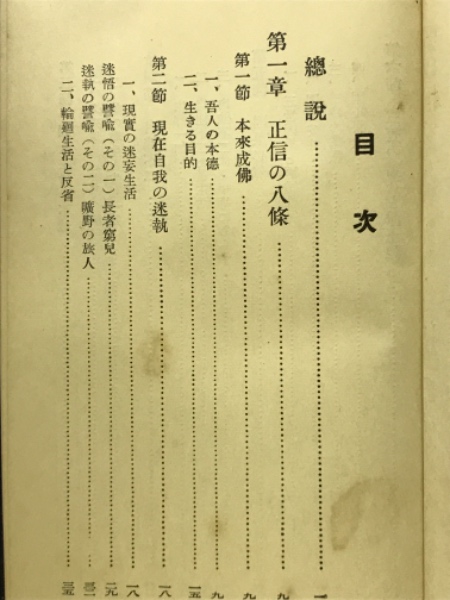 目次
總說……一
第一章 正信の八條……九
第一節 本來成佛……九
一、吾人の本德……九
二、生きる目的……一五
第二節 現在自我の迷執……一八
一、現實の迷妄生活……一八
迷悟の譬喩（その一）長者窮兒……二九
迷執の譬喩（その二）曠野の旅人……三一
二、輪廻生活と反省……三五